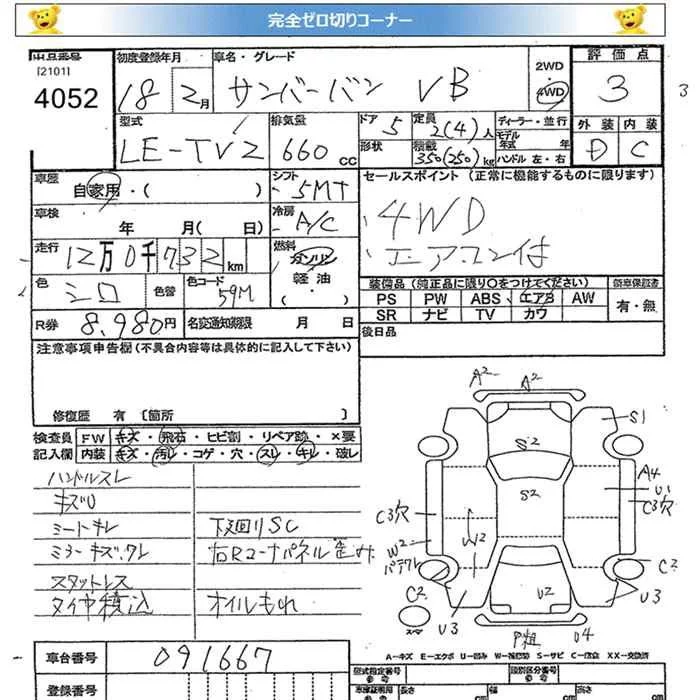 完全ゼロ切りコーナー
出品番号 初度登録年月 車名・グレード 2WD 評価点
[2101]
4052 18 2月 サンバーバン VB 4WD 3
3
型式 排気量 ドア 定員 ディーラー・並行 外装 内装
LE-TV2 660cc 5 2(4)人 モデル年式 年 D C
形状 積載 350(250)kg ハンドル 左・右
車歴 自家用・( ) シフト 5MT セールスポイント (正常に機能するものに限ります)
車検 年 月(日) 冷房 A/C ・4WD
走行 12万0千732km 燃料 ガソリン 軽油 ・エアコン付
・( )
色 シロ 色替 色コード 59M 装備品 (純正品に限り○をつけてください) 新車保証書
PS PW ABS エアB AW 有・無
R券 8,980円 名変通知期限 月 日 SR ナビ TV カワ
注意事項申告欄 (不具合内容等は具体的に記入して下さい) 後日品
修復歴 有 〔箇所 〕
検査員 FW キズ・飛石・ヒビ割・リペア跡・×要
記入欄 内装 キズ・汚レ・コゲ・穴・スレ・キレ・破レ
ハンドルスレ
キズU
ミートキレ 下廻りSC
ミラーキズ,ワレ 右Rコーナパネル歪み
スタットレス
タイヤ積込 オイルもれ
A2 A2
S1
S2
A4
S2 U1
C3穴 C3穴
W2 W2
パテワレ C2
C2 U2
スペア U3 U3
P粗 U4
A−キズ E−エクボ U−凹み W−補修跡 S−サビ C−腐食 XX−交換済
車台番号 091667 型式指定番号 類別区分番号
参考 参考
登録番号 車庫証明用 参考 長さ 幅 高さ
cm cm cm